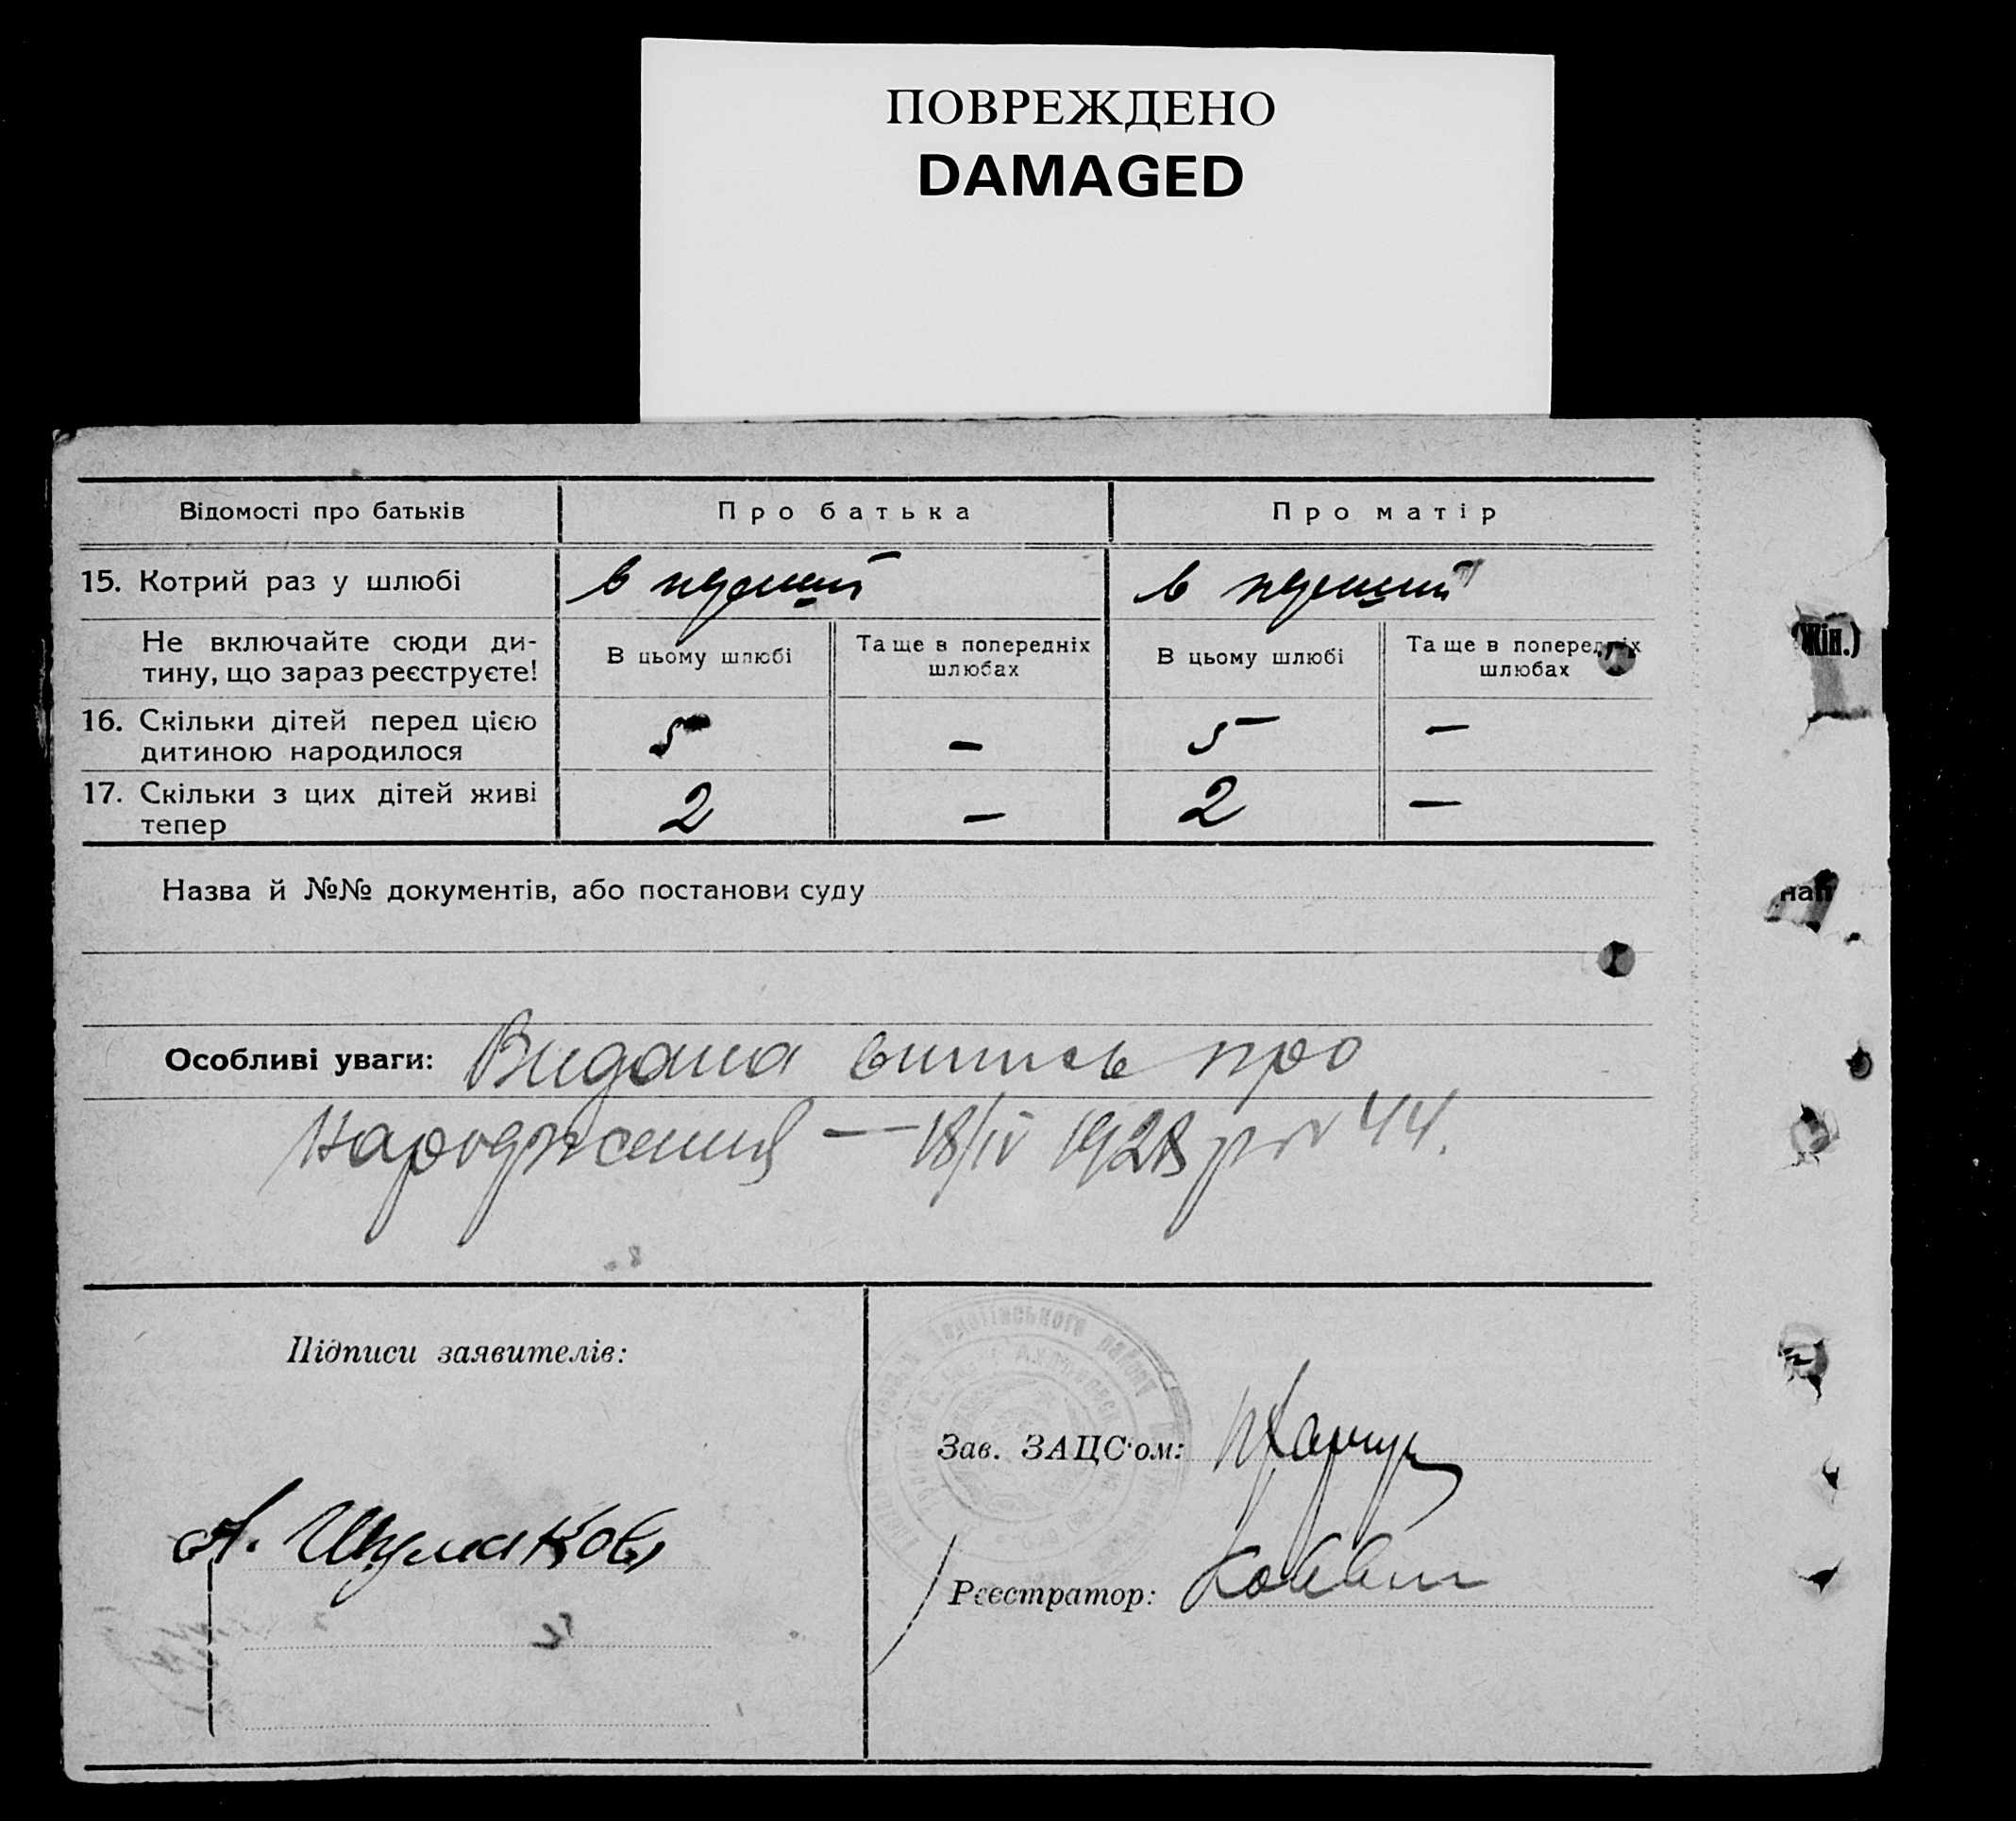 ПОВРЕЖДЕНО
DAMAGED
Відомості про батьків
Про батька
Про матір
15. Котрий раз у шлюбі
в перший
в перший
Не включайте сюди ди-
тину, що зараз реєструєте!
В цьому шлюбі
Та ще в попередніх
шлюбах
В цьому шлюбі
Та ще в попередніх
шлюбах
(Жін.)
16. Скільки дітей перед цією
дитиною народилося
5
—
5
—
17. Скільки з цих дітей живі
тепер
2
—
2
—
Назва й №№ документів, або постанови суду
Особливі уваги: Видана випись про
народження — 18/IV 1928 р № 44.
Підписи заявителів:
Зав. ЗАЦС'ом:
А. Шумаков
Реєстратор: